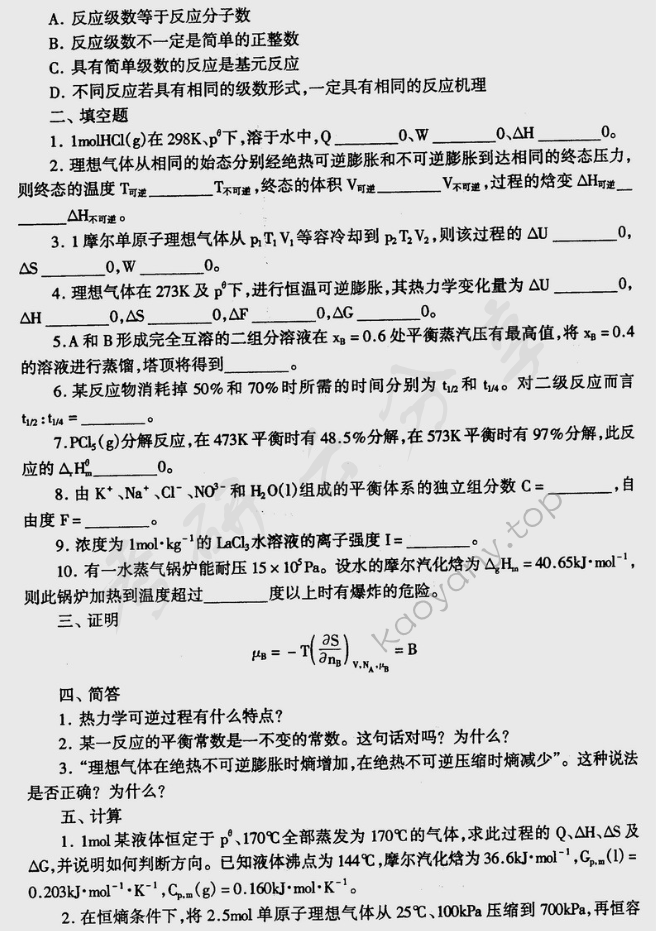 A. 反应级数等于反应分子数
B. 反应级数不一定是简单的正整数
C. 具有简单级数的反应是基元反应
D. 不同反应若具有相同的级数形式,一定具有相同的反应机理
二、填空题
1. 1molHCl(g)在298K、p^θ下,溶于水中,Q ______0、W ______0、ΔH ______0。
2. 理想气体从相同的始态分别经绝热可逆膨胀和不可逆膨胀到达相同的终态压力,
则终态的温度 T可逆______T不可逆,终态的体积 V可逆______V不可逆,过程的焓变 ΔH可逆__
____ΔH不可逆。
3. 1摩尔单原子理想气体从 p₁T₁V₁等容冷却到 p₂T₂V₂,则该过程的 ΔU ______0,
ΔS ______0,W ______0。
4. 理想气体在273K及 p^θ下,进行恒温可逆膨胀,其热力学变化量为 ΔU ______0,
ΔH ______0,ΔS ______0,ΔF ______0,ΔG ______0。
5.A和B形成完全互溶的二组分溶液在 x_B = 0.6 处平衡蒸汽压有最高值,将 x_B = 0.4
的溶液进行蒸馏,塔顶将得到______。
6. 某反应物消耗掉50%和70%时所需的时间分别为 t₁/₂和 t₁/₄。对二级反应而言
t₁/₂ : t₁/₄ = ______。
7.PCl₅(g)分解反应,在473K平衡时有48.5%分解,在573K平衡时有97%分解,此反
应的 Δ_rH_m^θ______0。
8. 由 K⁺、Na⁺、Cl⁻、NO³⁻和 H₂O(1)组成的平衡体系的独立组分数 C = ______,自
由度 F = ______。
9. 浓度为 1mol·kg⁻¹的 LaCl₃水溶液的离子强度 I = ______。
10. 有一水蒸气锅炉能耐压 15 × 10⁵Pa。设水的摩尔汽化焓为 Δ_gH_m = 40.65kJ·mol⁻¹,
则此锅炉加热到温度超过______度以上时有爆炸的危险。
三、证明
μ_B = - T(∂S/∂n_B)_V,N_A,μ_B = B
四、简答
1. 热力学可逆过程有什么特点?
2. 某一反应的平衡常数是一不变的常数。这句话对吗? 为什么?
3. “理想气体在绝热不可逆膨胀时熵增加,在绝热不可逆压缩时熵减少”。这种说法
是否正确? 为什么?
五、计算
1. 1mol某液体恒定于 p^θ、170℃全部蒸发为170℃的气体,求此过程的 Q、ΔH、ΔS及
ΔG,并说明如何判断方向。已知液体沸点为144℃,摩尔汽化焓为36.6kJ·mol⁻¹,C_p,m(l) =
0.203kJ·mol⁻¹·K⁻¹,C_p,m(g) = 0.160kJ·mol·K⁻¹。
2. 在恒熵条件下,将2.5mol单原子理想气体从25℃、100kPa压缩到700kPa,再恒容
考研云分享
kaoyany.top